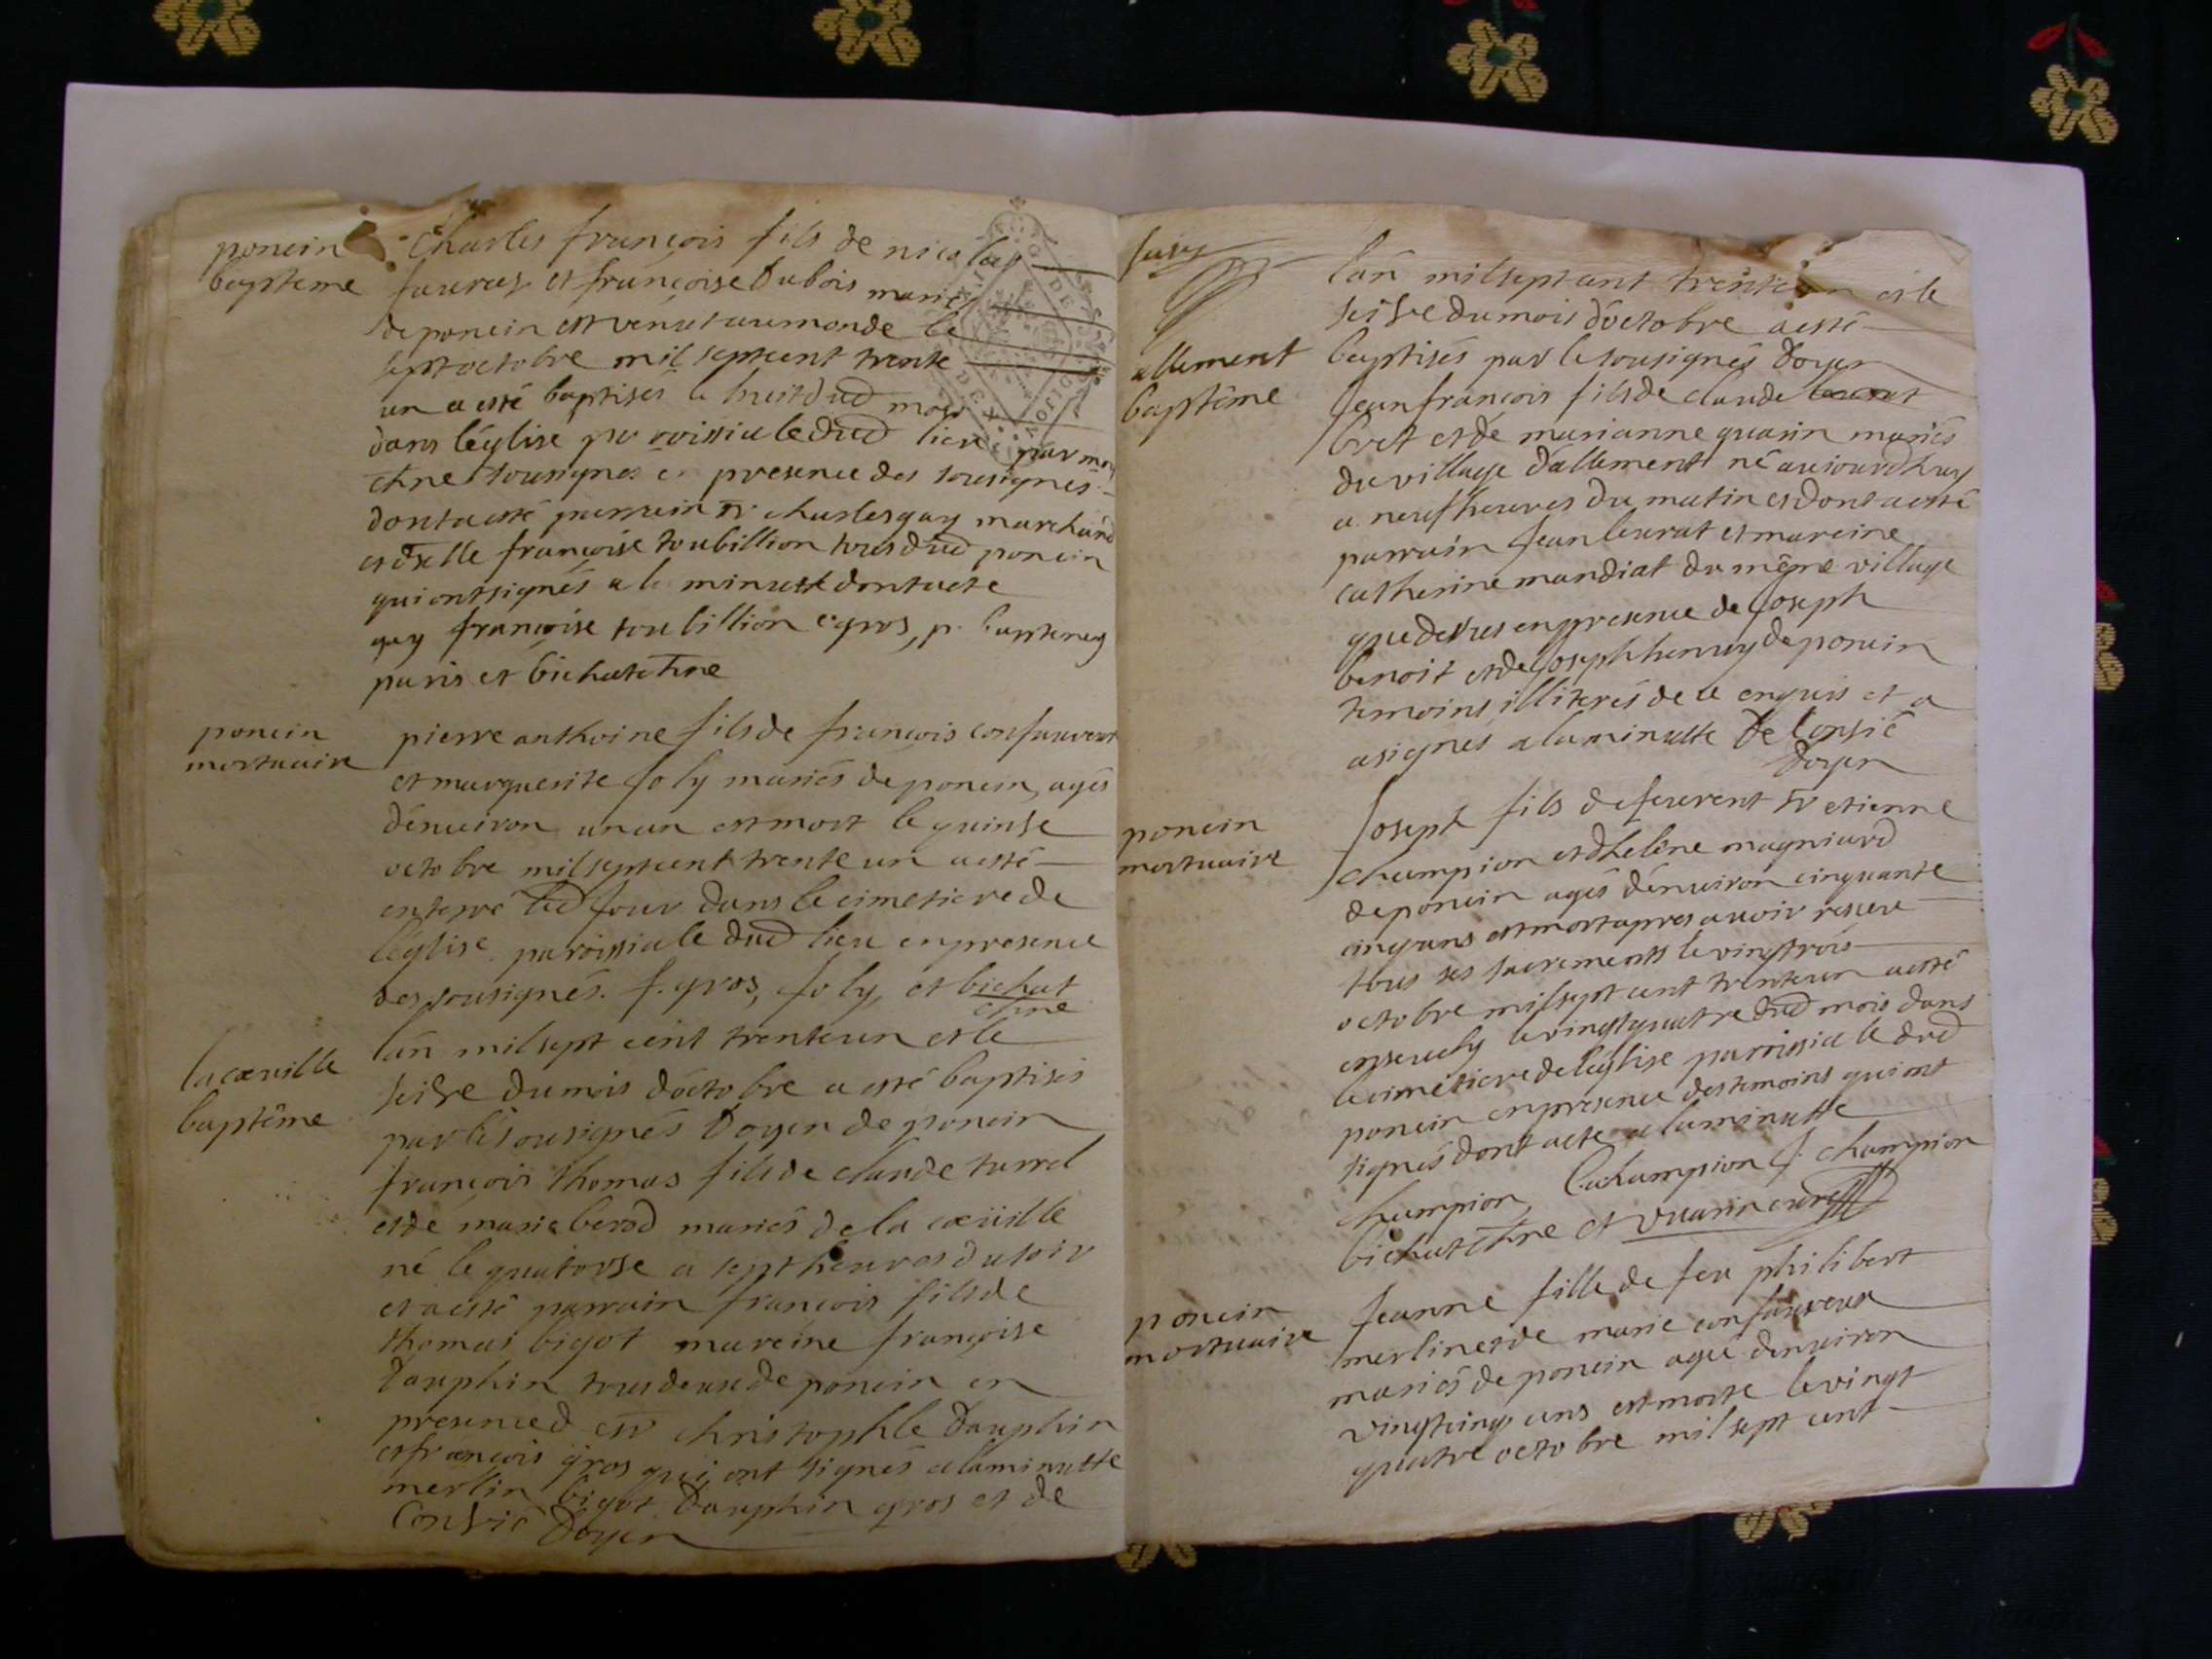 poncin
bapteme
Charles françois fils de nicolas
faurax et françoise Dubois mariés
de poncin est venut au monde le
sept octobre mil sept cent trente
un a esté baptisés le huit dud mois
dans l'église paroissiale dud lieu par moy
chne sousignes en presence des sousignes
dont a esté parrain sr charles gay marchand
et delle françoise toubillion tous dud poncin
qui ont signés a la minutte dont acte
gay françoise toubillion c gros, p.
paris et bichat chne
poncin
mortuaire
pierre anthoine fils de françois confavreux
et marguerite Joly mariés de poncin, agés
dénuiron un an est mort le quinse
octobre mil sept cent trente un a esté
enterré led jour dans le cimetiere de
léglise paroissiale dud lieu en presence
des sousignés. f. gros, Joly, et bichat
chne
la cœuille
baptême
lán mil sept cent trente un et le
seise du mois dóctobre a esté baptisés
par le sousignés Doyen de poncin
françois thomas fils de claude tarrel
et de marie berod mariés de la cœüille
né le quatorse a sept heures du soir
et a esté parrain françois fils de
thomas bigot mareine françoise
Dauphin tous deux de poncin en
presence d sr christophle Dauphin
et françois gros qui ont signés a la minutte
merlin bigot Dauphin gros et de
Consié Doyen
allement
baptême
lán mil sept cent trente un et le
seise du mois dóctobre a esté
baptisés par le sousignés Doyen
Jean françois fils de claude
bret et de marianne guarin mariés
du village d'allement né aujourdhuy
a neuf heures du matin et dont a esté
parrain Jean leurat et mareine
catherine mandiat du même village
que dessus en presence de Joseph
benoit et de Joseph henrry de poncin
temoins illiterés de ce enquis et a
a signés a la minutte De Consié
Doyen
poncin
mortuaire
Joseph fils de feu sr etienne
champion et dhelêne magniard
de poncin agés dénuiron cinquante
cinq ans est mort apres auoir receu
tous ses sacrements le vingtrois
octobre mil sept cent trente un a esté
enseuely le vingt quatre dud mois dans
le cimetiere de léglise parrissialle dud
poncin en presence des temoins qui ont
signés dont acte a la minutte
champion C. champion J. champion
bichat chne et vuarin curé
poncin
mortuaire
Jeanne fille de feu philibert
merlin et de marie confavreux
mariés de poncin agée denuiron
vingt cinq ans est morte le vingt
quatre octobre mil sept cent